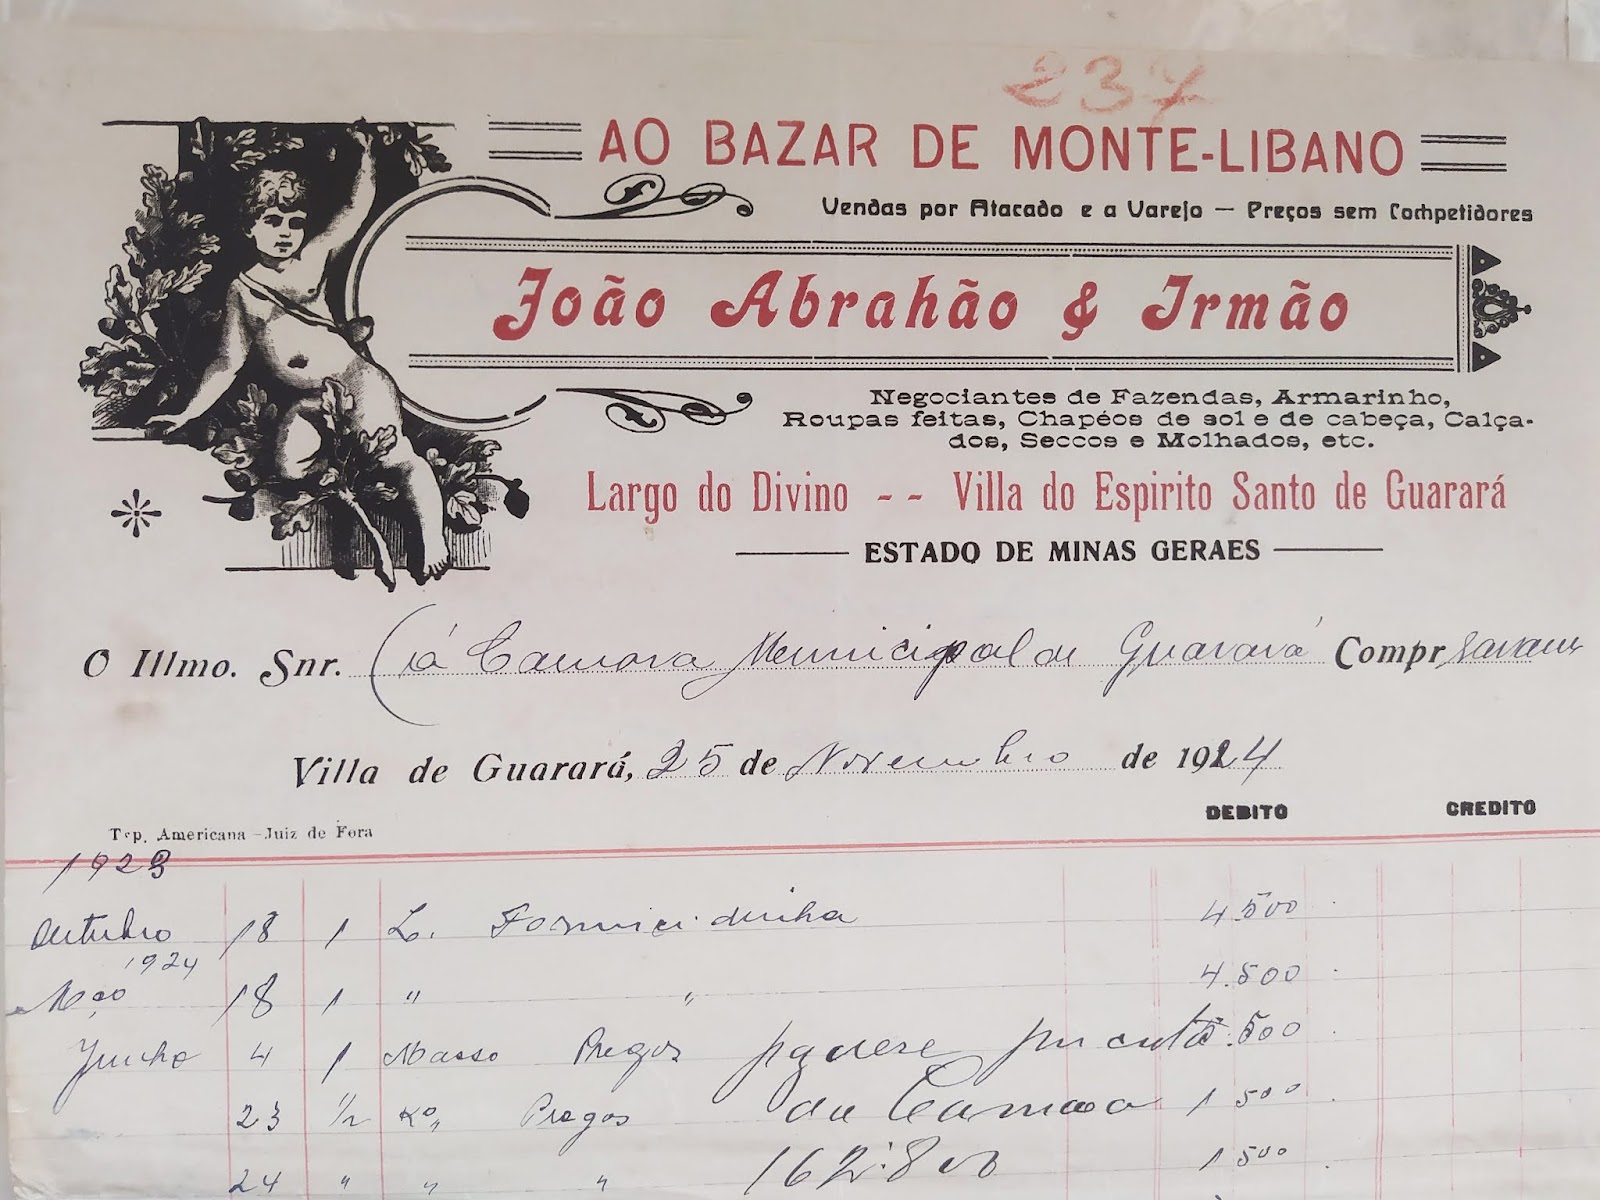 237
AO BAZAR DE MONTE-LIBANO
Vendas por Atacado e a Varejo — Preços sem Competidores
João Abrahão & Irmão
Negociantes de Fazendas, Armarinho,
Roupas feitas, Chapéos de sol e de cabeça, Calça-
dos, Seccos e Molhados, etc.
Largo do Divino - - Villa do Espirito Santo de Guarará
ESTADO DE MINAS GERAES
O Illmo. Snr. Camara Municipal de Guarará Compr
Villa de Guarará, 25 de Novembro de 1924
DEBITO CREDITO
Typ. Americana - Juiz de Fora
1923
Outubro 18 1 L. Formicidinha 4.500
1924
18 1 " " 4.500
Junho 4 1 Masso Pregos .500
23 1/2 Ko, Pregos da Camara 1 500
24 " " " 162:800 1 500